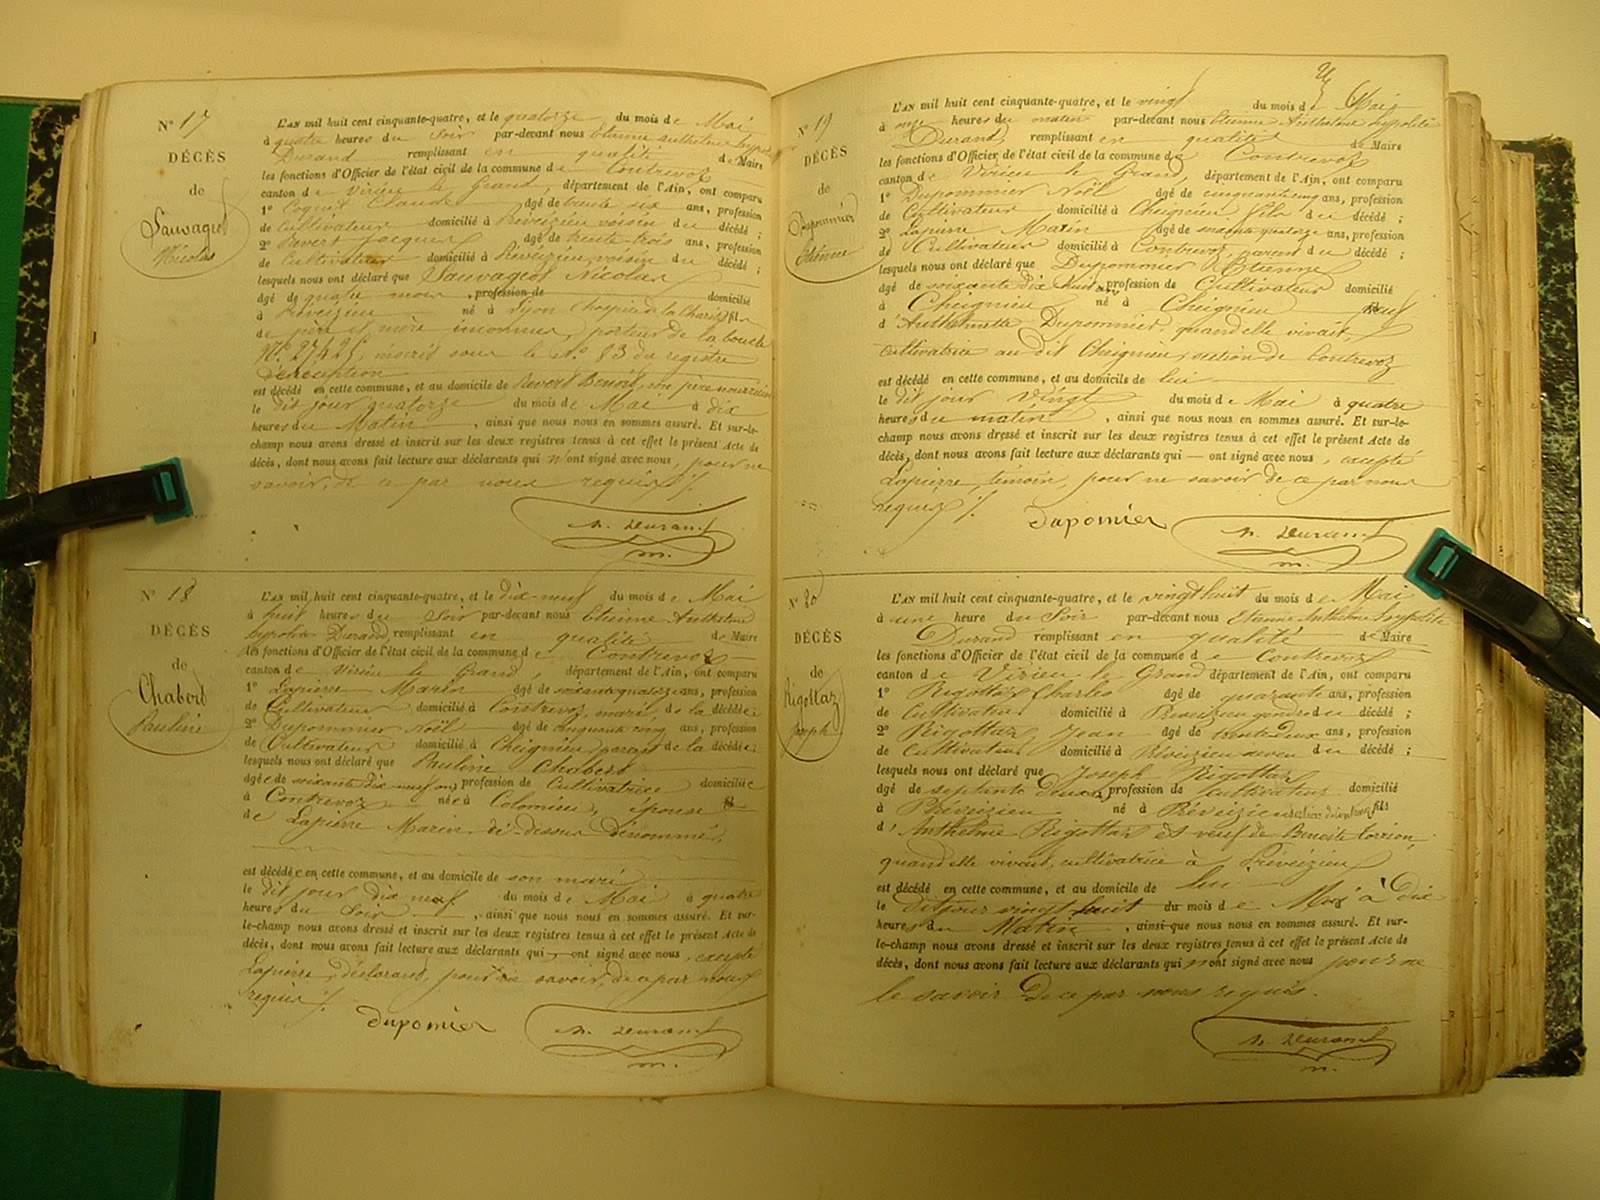 N° 17
DÉCÈS
de
Sauvageot
Nicolas
L'AN mil huit cent cinquante-quatre, et le quatorze du mois de Mai
à quatre heures du Soir par-devant nous Etienne Anthelme hypolite
Durand remplissant en qualité de Maire
les fonctions d'Officier de l'état civil de la commune de Contrevoz
canton de Virieu le Grand, département de l'Ain, ont comparu
1° Coquet Claude âgé de trente six ans, profession
de Cultivateur domicilié à Préveizieu voisin du décédé ;
2° Revert Jacques âgé de trente-trois ans, profession
de Cultivateur domicilié à Préveizieu, voisin du décédé ;
lesquels nous ont déclaré que Sauvageot Nicolas
âgé de quatre mois, profession de domicilié
à Préveizieu né à Lyon hospice de la Charité, fils
de père et mère inconnus, porteur de la boucle
N° 27425, inscrit sous le N° 83 du registre
de réception
est décédé en cette commune, et au domicile de Revert Benoit, son père nourricier
le dit jour quatorze du mois de Mai à dix
heures du Matin, ainsi que nous nous en sommes assuré. Et sur-le-
champ nous avons dressé et inscrit sur les deux registres tenus à cet effet le présent Acte de
décès, dont nous avons fait lecture aux déclarants qui n'ont signé avec nous, pour ne
savoir, de ce par nous requis ./.
h. Durand
m.
N° 18
DÉCÈS
de
Chabert
Pauline
L'AN mil huit cent cinquante-quatre, et le dix-neuf du mois de Mai
à huit heures du Soir par-devant nous Etienne Anthelme
hypolite Durand remplissant en qualité de Maire
les fonctions d'Officier de l'état civil de la commune de Contrevoz
canton de Virieu le Grand, département de l'Ain, ont comparu
1° Lapierre Marin âgé de soixante quatorze ans, profession
de Cultivateur domicilié à Contrevoz, mari de la décédée ;
2° Dupommier Noël âgé de cinquante cinq ans, profession
de Cultivateur domicilié à Cheignieu parent de la décédée ;
lesquels nous ont déclaré que Pauline Chabert
âgée de soixante dix neuf ans, profession de Cultivatrice domiciliée
à Contrevoz née à Colomieu, épouse
de Lapierre Marin ci-dessus dénommé,
est décédée en cette commune, et au domicile de son mari
le dit jour dix neuf du mois de Mai à quatre
heures du Soir, ainsi que nous nous en sommes assuré. Et sur-
le-champ nous avons dressé et inscrit sur les deux registres tenus à cet effet le présent Acte de
décès, dont nous avons fait lecture aux déclarants qui — ont signé avec nous, excepté
Lapierre, déclarant, pour ne savoir, de ce par nous
requis ./.
Dupomier
h. Durand
m.
N° 19
DÉCÈS
de
Dupommier
Etienne
L'AN mil huit cent cinquante-quatre, et le vingt du mois de Mai
à onze heures du matin par-devant nous Etienne Anthelme hypolite
Durand remplissant en qualité de Maire
les fonctions d'Officier de l'état civil de la commune de Contrevoz
canton de Virieu le Grand, département de l'Ain, ont comparu
1° Dupommier Noël âgé de cinquante cinq ans, profession
de Cultivateur domicilié à Cheignieu, fils du décédé ;
2° Lapierre Marin âgé de soixante quatorze ans, profession
de Cultivateur domicilié à Contrevoz, parent du décédé ;
lesquels nous ont déclaré que Dupommier Etienne
âgé de soixante dix huit ans, profession de Cultivateur domicilié
à Cheignieu né à Cheignieu
d'Anthelmette Dupommier, quand elle vivait,
cultivatrice au dit Cheignieu, section de Contrevoz
est décédé en cette commune, et au domicile de lui
le dit jour Vingt du mois de Mai à quatre
heures du matin, ainsi que nous nous en sommes assuré. Et sur-le-
champ nous avons dressé et inscrit sur les deux registres tenus à cet effet le présent Acte de
décès, dont nous avons fait lecture aux déclarants qui — ont signé avec nous, excepté
Lapierre, témoin, pour ne savoir de ce par nous
requis ./.
Dupomier
h. Durand
m.
N° 20
DÉCÈS
de
Rigottaz
Joseph
L'AN mil huit cent cinquante-quatre, et le vingt huit du mois de Mai
à une heure du Soir par-devant nous Etienne Anthelme hypolite
Durand remplissant en qualité de Maire
les fonctions d'Officier de l'état civil de la commune de Contrevoz
canton de Virieu-le-Grand département de l'Ain, ont comparu
1° Rigottaz Charles âgé de quarante ans, profession
de Cultivateur domicilié à Préveizieu gendre du décédé ;
2° Rigottaz Jean âgé de trente deux ans, profession
de Cultivateur domicilié à Préveizieu neveu du décédé ;
lesquels nous ont déclaré que Joseph Rigottaz
âgé de septante deux ans, profession de Cultivateur domicilié
à Préveizieu né à Préveizieu section de Contrevoz fils
d'Anthelme Rigottaz et veuf de Benoite
quand elle vivait, cultivatrice à Préveizieu
est décédé en cette commune, et au domicile de lui
le dit jour vingt huit du mois de Mai à Dix
heures du Matin, ainsi que nous nous en sommes assuré. Et sur-
le-champ nous avons dressé et inscrit sur les deux registres tenus à cet effet le présent Acte de
décès, dont nous avons fait lecture aux déclarants qui n'ont signé avec nous pour ne
le savoir de ce par nous requis.
h. Durand
m.